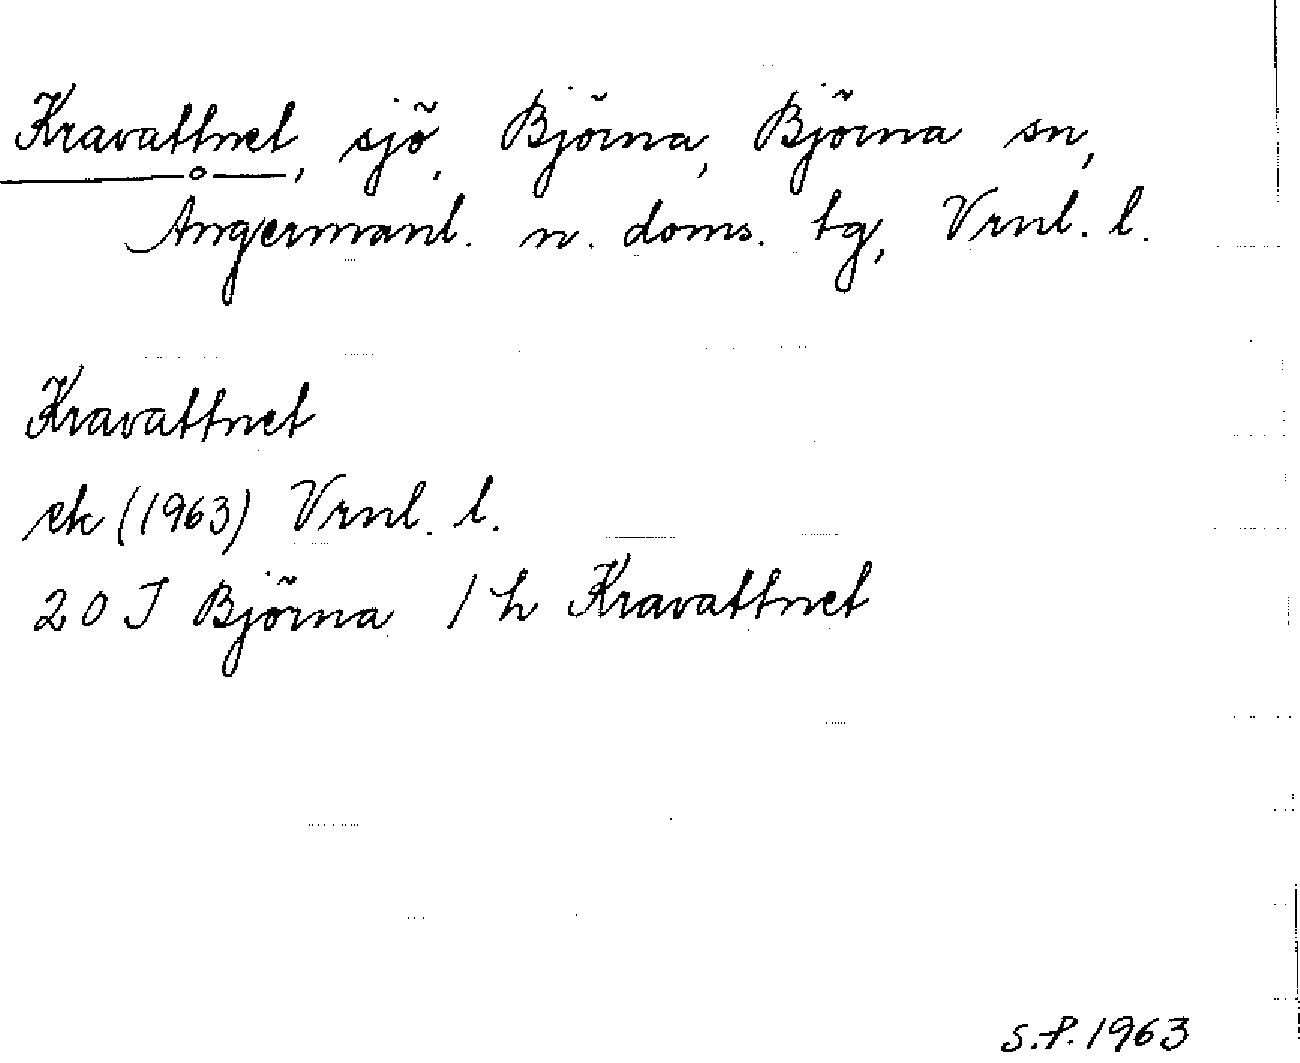 Kravattnet, sjö, Björna, Björna sn,
Ångermanl. n. doms. tg, Vrnl. l.
Kravattnet
ek (1963) Vrnl. l.
20 J Björna 1 h Kravattnet
S.P. 1963